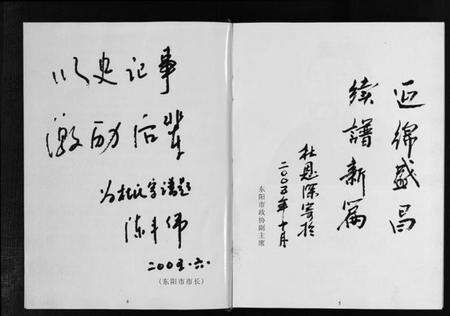 以史记事
激励后辈
为杜氏宗谱题
陈丰伟
二〇〇五·六·
（东阳市市长）
延绵盛昌
续谱新篇
杜恩深寄於
二〇〇五年十月
东阳市政协副主席